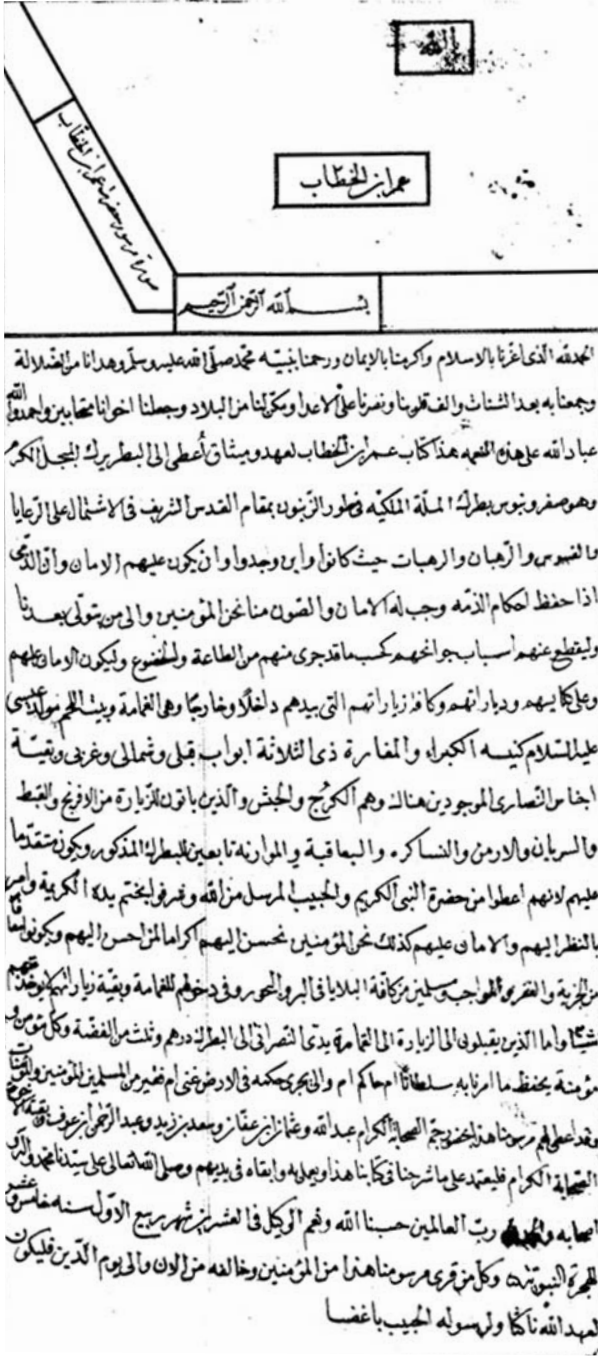 بالله
عمر ابن الخطاب
صورة مرسوم حضرة عمر ابن الخطاب
بسم الله الرحمن الرحيم
الحمد لله الذى اعزنا بالاسلام واكرمنا بالايمان ورحمنا بنبيه محمد صلى الله عليه وسلم وهدانا من الضلالة
وجمعنا به بعد الشتات والف قلوبنا ونصرنا على الاعدا ومكن لنا من البلاد وجعلنا اخوانا متحابين واحمدوا الله
عباد الله على هذه النعمه هذا كتاب عمر ابن الخطاب لعهد وميثاق أعطى الى البطريرك المبجل المكرم
وهو صفرونيوس بطرك الملّة الملكيّه فى طور الزيتون بمقام القدس الشريف فى الاشتمال على الرعايا
والقسوس والرهبان والرهبات حيث كانوا واين وجدوا وان يكون عليهم الامان وان الذمى
اذا حفظ احكام الذمه وجب له الامان والصون منا نحن المؤمنين والى من يتولى بعدنا
وليقطع عنهم اسباب جوانحهم كحسب ما قد جرى منهم من الطاعة والخضوع وليكون الامان عليهم
وعلى كنايسهم وديارانهم وكافة زياراتهم التى بيدهم داخلًا وخارجًا وهى القمامة وبيت اللحم مولد عيسى
عليه السلام كنيسه الكبراء والمغارة ذى الثلاثة ابواب قبلى وشمالى وغربى وبقيّة
اجناس النصارى الموجودين هناك وهم الكرج والحبش والذين ياتون للزيارة من الافرنج والقبط
والسريان والارمن والنساطره واليعاقبة والموارنه تابعين للبطرك المذكور ويكون متقدّما
عليهم لانهم اعطوا من حضرة النبى الكريم والحبيب المرسل من الله وشرفوا بختم يده الكريمة وامر
بالنظر اليهم والامان عليهم كذلك نحن المؤمنين نحسن اليهم اكراما لمن احسن اليهم ويكونوا معافا
من الجزية والغفر والمواجب ومسلمين من كافة البلايا فى البر والبحور وفى دخولهم للقمامة وبقية زياراتهم لا يوخذ منهم
شيئًا واما الذين يقبلون الى الزيارة الى القمامة يؤدى النصرانى الى البطرك درهم وثلث من الفضة وكل مؤمن و
مؤمنة يحفظ ما امرنا به سلطانًا ام حاكم ام والى يجرى حكمه فى الارض غنى ام فقير من المسلمين المؤمنين والمؤمنات
وقد اعطى لهم مرسومنا هذا بحضور جم الصحابة الكرام عبد الله وعثمان ابن عفان وسعد بن زيد وعبد الرحمن ابن عوف وبقية الاخوة
الصحابة الكرام فليعتمد على ما شرحنا فى كتابنا هذا ويعمل به وابقاه فى يديهم وصلى الله تعالى على سيدنا محمد واله و
اصحابه والحمد لله رب العالمين حسبنا الله ونعم الوكيل فى العشرين شهر ربيع الاول سنه خامس وعشر
للهجرة النبوية وكل من قرى مرسومنا هذا من المؤمنين وخالفه من الان والى يوم الدين فليكون
لعهد الله ناكثا ولرسوله الحبيب باغضا